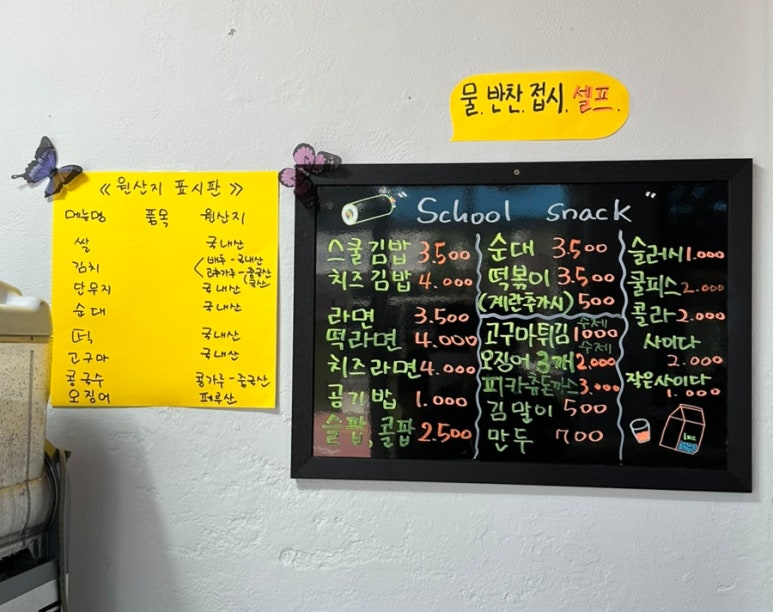 물. 반찬. 접시. 셀프.
《원산지 표시판》
메뉴명 품목 원산지
쌀 국내산
김치 배추-국내산
고추가루-중국산
국산
단무지 국내산
순대 국내산
떡 국내산
고구마 국내산
콩국수 콩가루-중국산
오징어 페루산
"School snack"
스쿨김밥 3.500
치즈김밥 4.000
라면 3.500
떡라면 4.000
치즈라면 4.000
공기밥 1.000
슬팝, 콜팝 2.500
순대 3.500
떡볶이 3.500
(계란추가시) 500
고구마튀김 수제 1000
오징어 3개 수제 2.000
피카츄돈까스 3.000
김말이 500
만두 700
슬러시 1.000
쿨피스 2.000
콜라 2.000
사이다
2.000
작은사이다
1.000